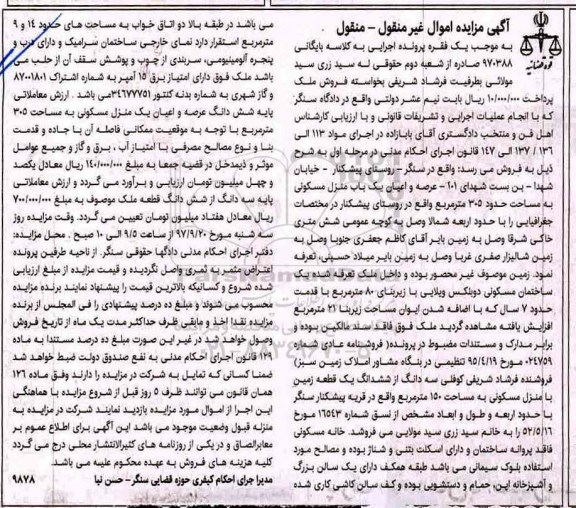 آگهی مزایده اموال غیر منقول - منقول
به موجب یک فقره پرونده اجرایی به کلاسه بایگانی
۹۷۰۳۸۸ صادره از شعبه دوم حقوقی له سید زری سید
مولائی بطرفیت فرشاد شریفی بخواسته فروش ملک
پرداخت ۱۰/۰۰۰/۰۰۰ ریال بابت نیم عشر دولتی واقع در دادگاه سنگر
که با انجام عملیات اجرایی و تشریفات قانونی و با ارزیابی کارشناس
اهل فن و منتخب دادگستری آقای بابازاده در اجرای مواد ۱۱۳ الی
۱۳۶ / ۱۳۷ الی ۱۴۷ قانون اجرای احکام مدنی در مرحله اول به شرح
ذیل به فروش می رسد: واقع در سنگر - روستای پیشکنار - خیابان
شهدا - بن بست شهدای ۱۰۱ - عرصه و اعیان یک باب منزل مسکونی
به مساحت حدود ۳۰۵ مترمربع واقع در روستای پیشکنار در مختصات
جغرافیایی را با حدود اربعه شمالا وصل به کوچه عمومی شش متری
خاکی شرقا وصل به زمین بایر آقای کاظم جعفری جنوبا وصل به
زمین شالیزار صفری غربا وصل به زمین بایر میلاد حسینی، تعرفه
نمود. زمین موصوف غیر محصور بوده و داخل ملک تعرفه شده یک
ساختمان مسکونی دوبلکس ویلایی با زیربنای ۸۰ مترمربع با قدمت
حدود ۷ سال که با اضافه شدن ایوان مساحت زیربنا ۲۱ مترمربع
افزایش یافته مشاهده گردید ملک فوق فاقد سند مالکین بوده و
برابر مدارک و مستندات مضبوط در پرونده( فروشنامه عادی شماره
۰۲۴۷۵۹ مورخ ۹۵/۴/۱۹ تنظیمی در بنگاه مشاور املاک زمین سبز)
فروشنده فرشاد شریفی کوفلی سه دانگ از ششدانگ یک قطعه زمین
با منزل مسکونی به مساحت ۱۵۰ مترمربع واقع در قریه پیشکنار سنگر
با حدود اربعه و طول و ابعاد مشخص از نسق شماره ۱۶۵۴۳ مورخ
۵۲/۵/۱۶ را به خانم سید زری سید مولایی می فروشد. خانه مسکونی
فاقد پروانه ساختمان و دارای اسکلت بتنی و شناژ بوده و مصالح مورد
استفاده بلوک سیمانی می باشد طبقه همکف دارای یک سالن بزرگ
و آشپزخانه اپن، حمام و دستشویی بوده و کف سالن کاشی کاری شده
می باشد در طبقه بالا دو اتاق خواب به مساحت های حدود ۱۴ و ۹
مترمربع استقرار دارد نمای خارجی ساختمان سرامیک و دارای درب و
پنجره آلومینیومی، سربندی از چوب و پوشش سقف آن از حلب می
باشد ملک فوق دارای امتیاز برق ۱۵ آمپر به شماره اشتراک ۸۷۰۰۱۸۰۱
و گاز شهری به شماره بدنه کنتور ۳۴۶۷۷۷۵۱می باشد . ارزش معاملاتی
پایه شش دانگ عرصه و اعیان یک منزل مسکونی به مساحت ۳۰۵
مترمربع با توجه به موقعیت ممکانی فاصله آن با جاده و قدمت
بنا و نوع مصالح مصرفی با امتیاز آب ، برق و گاز و جمیع عوامل
موثر و ذیمدخل در قضیه جمعا به مبلغ ۱/۴۰۰/۰۰۰/۰۰۰ ریال معادل یکصد
و چهل میلیون تومان ارزیابی و برآورد می گردد و ارزش معاملاتی
پایه سه دانگ از شش دانگ قطعه ملک موصوف به مبلغ ۷۰۰/۰۰۰/۰۰۰
ریال معادل هفتاد میلیون تومان تعیین می گردد. وقت مزایده روز
سه شنبه مورخ ۹۷/۹/۲۰ از ساعت ۹/۵ الی ۱۰ صبح . محل مزایده:
دفتر اجرای احکام مدنی دادگها حقوقی سنگر. از ناحیه طرفین پرونده
اعتراض مثمر به ثمری واصل نگردیده و قیمت مزایده از مبلغ ارزیابی
شده شروع و کسانیکه بالاترین قیمت را پیشنهاد نمایند برنده مزایده
محسوب می شوند و مبلغ ده درصد پیشنهادی را فی المجلس از برنده
مزایده نقدا اخذ و مابقی ظرف حداکثر مدت یک ماه از تاریخ فروش
وصول خواهد شد در غیر این صورت مبلغ ده درصد مستندا به ماده
۱۲۹ قانون اجرای احکام مدنی به نفع صندوق دولت ضبط خواهد شد
ضمنا کسانی که تمایل به شرکت در مزایده را دارند وفق ماده ۱۲۶
همان قانون می توانند ظرف ۵ روز قبل از شروع مزایده با هماهنگی
این اجرا از اموال مورد مزایده بازدید نمایند شرکت در مزایده به
منزله قبول وضعیت موجود می باشد این آگهی برای اطلاع عموم بر
معابرالصاق و در یکی از روزنامه های کثیرالانتشار محلی درج می گردد
کلیه هزینه های فروش به عهده محکوم علیه می باشد.
مدیرا جرای احکام کیفری حوزه قضایی سنگر - حسن نیا
۹۸۷۸